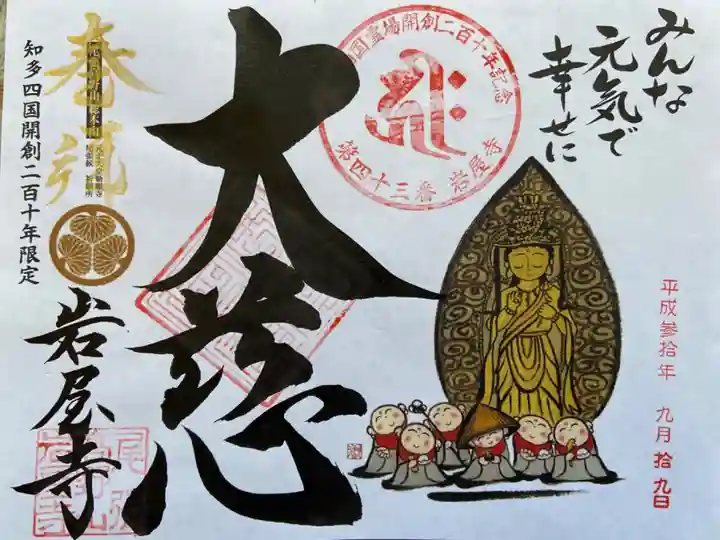 みんな
元気で
幸せに
平成参拾年 九月 拾九日
国霊場開創二百十年記念
第四十三番 岩屋寺
大慈
奉拝
岩屋寺
知多四国開創二百十年限定